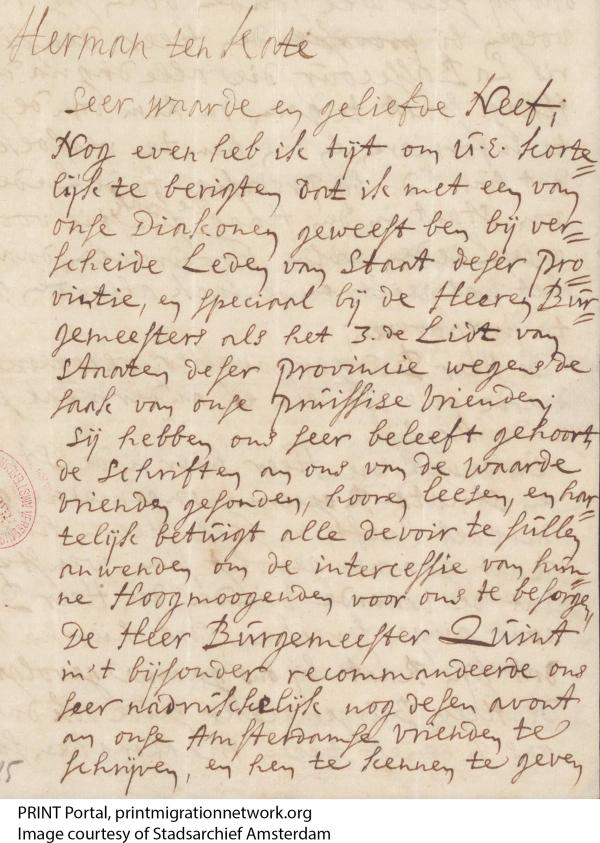 Herman ten Kate
Seer waarde en geliefde Neef;
Nog even heb ik tyt om U.E. korte=
lijk te berigten dat ik met een van
onse Diakonen geweest ben bij ver=
scheide Leden van Staat deser Pro=
vintie, en speciaal bij de Heeren Bur=
gemeesters als het 3.de Lidt van
Staaten deser provincie wegens de
saak van onse pruissise vrienden;
Sij hebben ons seer beleeft gehoort,
de Schriften an ons van de waarde
vrienden gesonden, hooren leesen, en har=
telijk betuigt alle devoir te sullen
anwenden om de intercessie van hun=
ne Hoogmoogenden voor ons te besorgen
De Heer Burgemeester Quint
in't bijsonder recommandeerde ons
seer nadruckelijk nog desen avont
an onse Amsterdamse vrienden te
schrijven, en hen te kennen te geven
PRINT Portal, printmigrationnetwork.org
Image courtesy of Stadsarchief Amsterdam